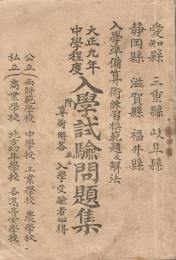 愛知縣 三重縣 岐阜縣
静岡縣 滋賀縣 福井縣
入學準備算術練習模範題及解法
大正九年
中學程度
入學試驗問題集
附 算術解答 入學受驗者心得
公立 両師範學校 中學校 工業學校 農學校
私立 商業學校 地方幼年學校 各高等女學校